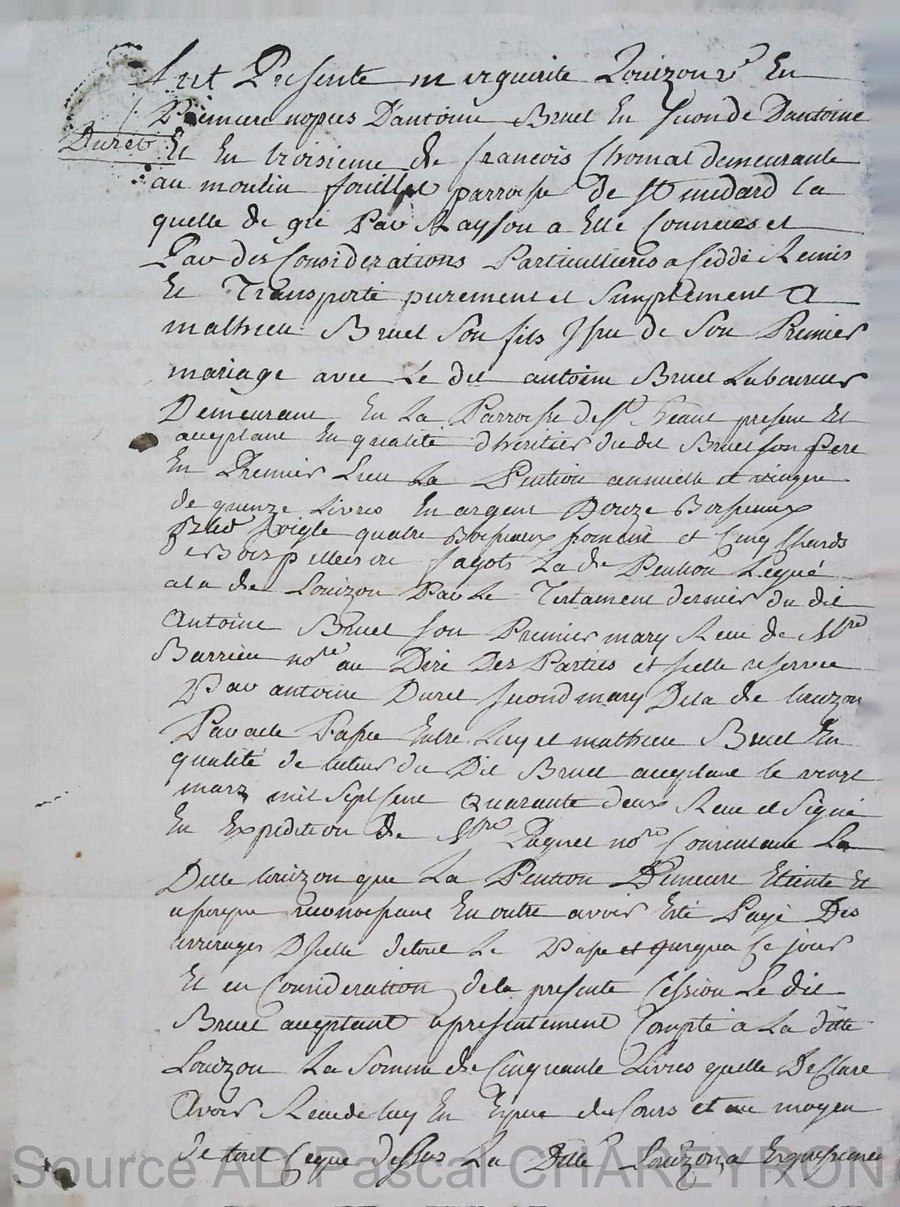 fut Presente marguerite Louizon ve En
Premiere nopces Dantoine Bruel En second Dantoine
Duret Et En troisieme de francois Chomat demeurante
au moulin fouillet parroisse de St medard la
quelle de gré Par Raysson a Elle Connues et
Par des Considerations Particullieres a Ceddé Remis
Et Transporté purement et Simplement A
mathieu Bruel Son fils Issu de Son Premier
mariage avec Le dit antoine Bruel Laboureur
Demeurant En La Parroisse de St heant present Et
acceptant En qualité dheritier du dit Bruel son Pere
En Premier Lieu La Pention annuelle et viagere
de quinze Livres En argent Douze Boisseaux
Bled Soigle quatre Boisseaux froment et Cinq Chards
Bois fagots La de Pention Legué
a la de Louizon Par Le Testament dernier du dit
Antoine Bruel son Premier mary Receu de Mre
Barrieu nore au Dire Des Parties et selle reservee
Par antoine Duret second mary De la de Louizon
Par acte Passé Entre Luy et mathieu Bruel En
qualité de tuteur du Dit Bruel acceptant le vingt
mars mil Sept Cent Quarante deux Receu et Signé
En Expedition de Mre Paquet nore Consentant La
Ditte Louizon que La Pention Demeure Eteinte Et
reconoissant En outre avoir Eté Payé Des
arrerages Dicelle de tout Le Passé et jusqua Ce jour
Et en Consideration de la presente Cession Le dit
Bruel acceptant a presentement Compté a La ditte
Louizon La Somme de Cinquante Livres quelle Declare
Avoir Receu de luy En Espece du Cours et au moyen
de tout Ceque dessus La Ditte Louizon a Expressement
Source AD Pascal CHAREYRON